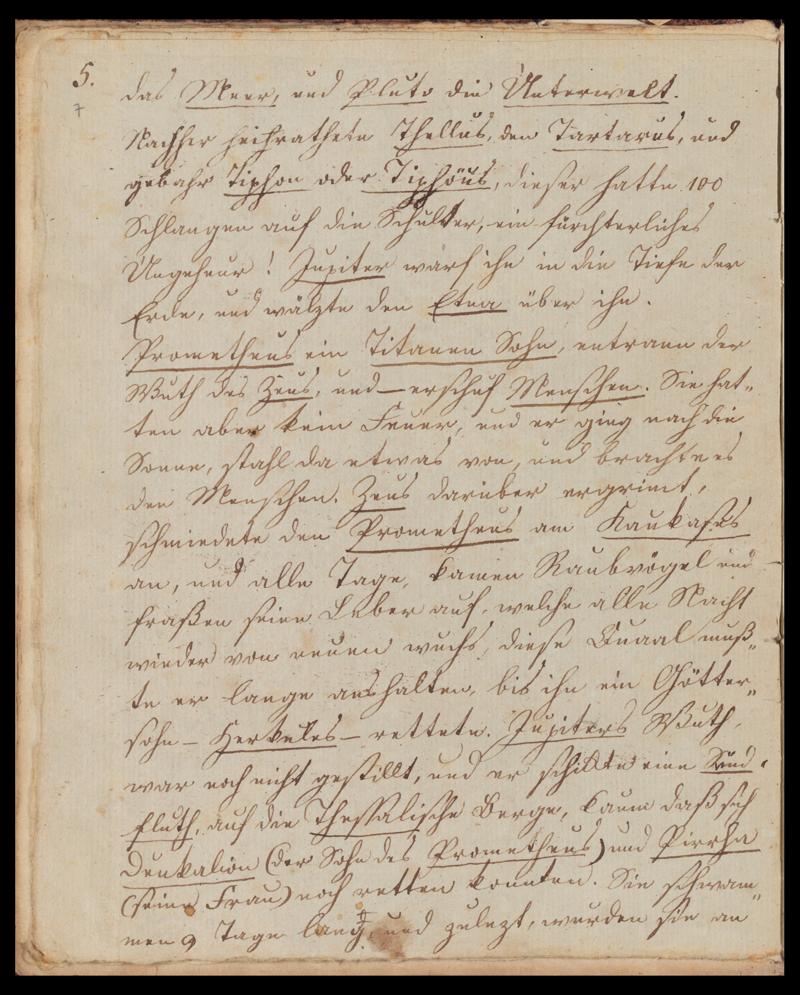 5.
7
das Meer, und Pluto die Unterwelt.
Nachher heihrathete Thellus, den Tartarus, und
gebahr Tiphon oder Tiphöus, dieser hatte 100
Schlangen auf die Schulter, ein fürchterliches
Ungeheur! Jupiter warf ihn in die Tiefe der
Erde, und wälzte den Etna über ihn.
Prometheus ein Titanen Sohn, entrann der
Wuth des Zeus, und – erschuf Menschen. Sie hat„
ten aber kein Feuer, und er ging nach die
Sonne, stahl da etwas von, und brachte es
den Menschen. Zeus darüber ergrimt,
schmiedete den Prometheus am Kaukasus
an, und alle Tage, kamen Raubvögel und
fraßen seine Leber auf, welche alle Nacht
wieder von neuen wuchs, diese Quaal muß„
te er lange aushalten, bis ihn ein Götter„
sohn – Herkules – rettete. Jupiters Wuth,
war noch nicht gestillt, und er schickte eine Sünd„
fluth, auf die Thessalische Berge, kaum daß sich
Deukalion (der Sohn des Prometheus) und Pirrha
(seine Frau) noch retten konnten. Sie schwam„
men 9 Tage lang, und zulezt, wurden sie an